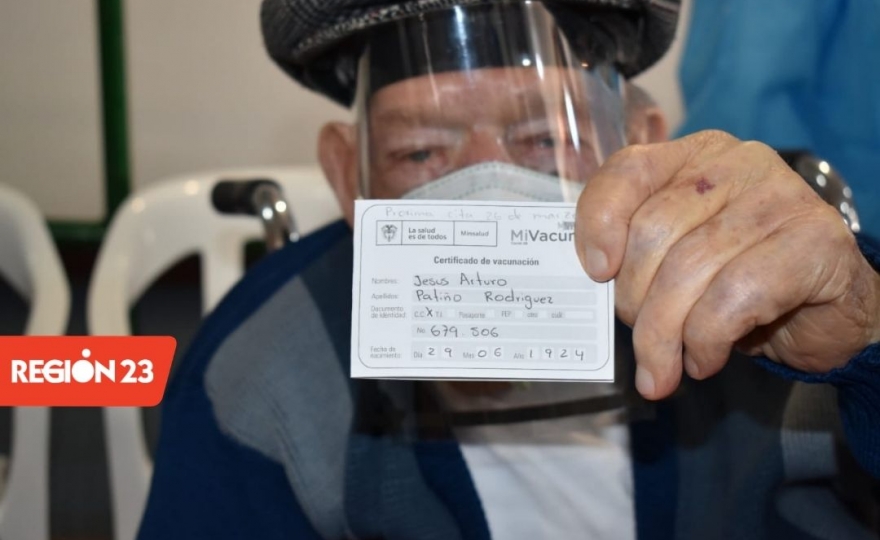 Proxima cita 26 de mar
La salud
es de todos
Minsalud
MiVacun
Certificado de vacunación
Nombres: Jesus Arturo
Apellidos: Patiño Rodriguez
Documento
de identidad: C.C X T.I. Pasaporte PEP
No. 679.506
Fecha de
nacimiento: Día 29 Mes 06 Año 1924
REGIÓN 23